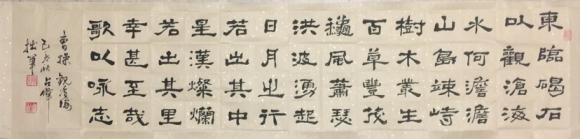 東臨碣石
以觀滄海
水何澹澹
山島竦峙
樹木叢生
百草豐茂
穐風蕭瑟
洪波湧起
日月之行
若出其中
星漢燦爛
若出其里
幸甚至哉
歌以咏志
曹操觀滄海
拙筆